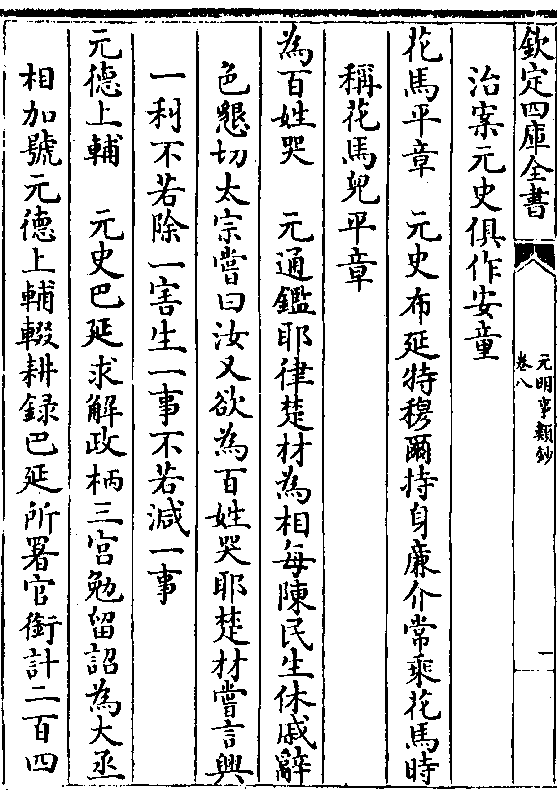 欽定四庫全書
元明事類鈔
卷八
一
治案元史俱作安童
花馬平章　元史布延特穆爾持身廉介常乘花馬時
稱花馬兒平章
為百姓哭　元通鑑耶律楚材為相每陳民生休戚辭
色懇切太宗嘗曰汝又欲為百姓哭耶楚材嘗言興
一利不若除一害生一事不若減一事
元德上輔　元史巴延求解政柄三宮勉留詔為大丞
相加號元德上輔輟耕録巴延所署官銜計二百四